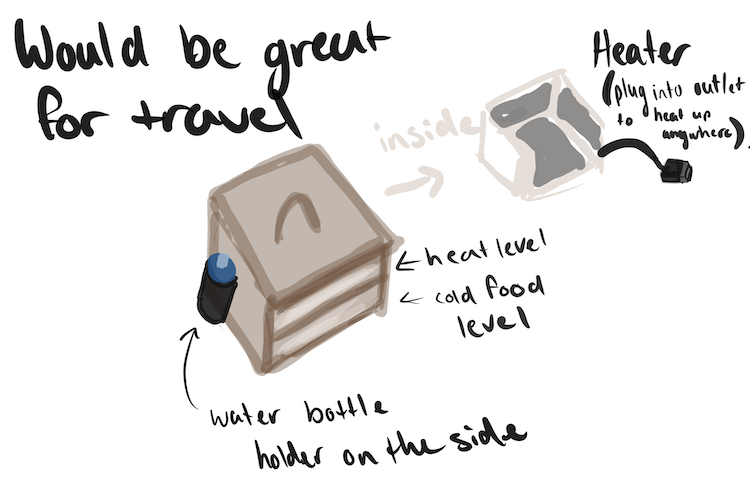 Would be great
for travel
inside
Heater
(plug into outlet
to heat up
anywhere).
heat level
cold food
level
water bottle
holder on the side